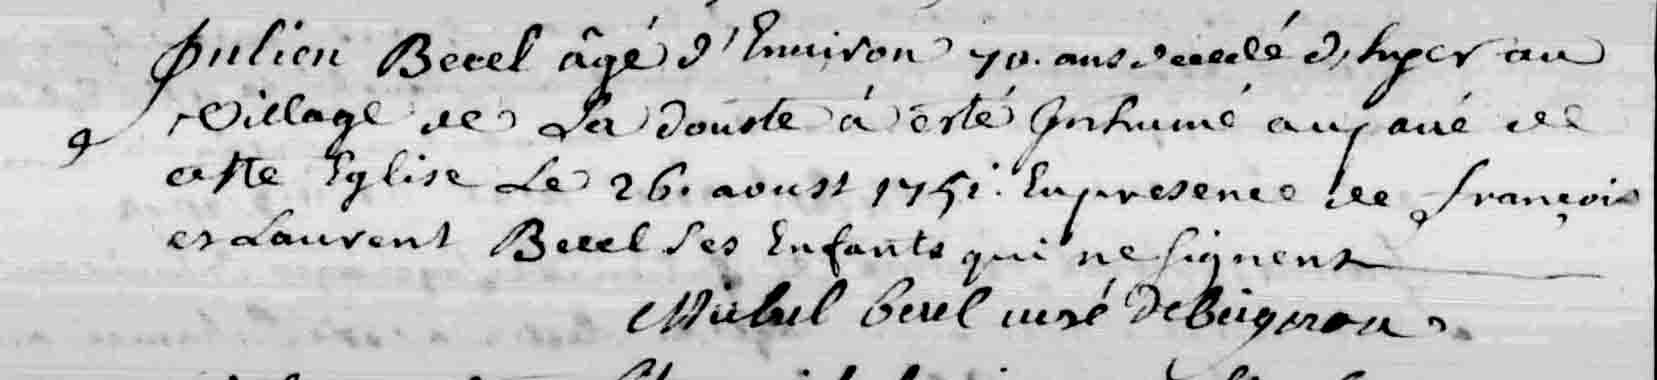 Julien Becel âgé d'Environ 70. ans decedé d'hyer au
Village de La douste à esté Inhumé au pavé de
cette Eglise Le 26. aoust 1751. En presence de François
et Laurent Becel ses Enfants qui ne signent
Michel becel curé De